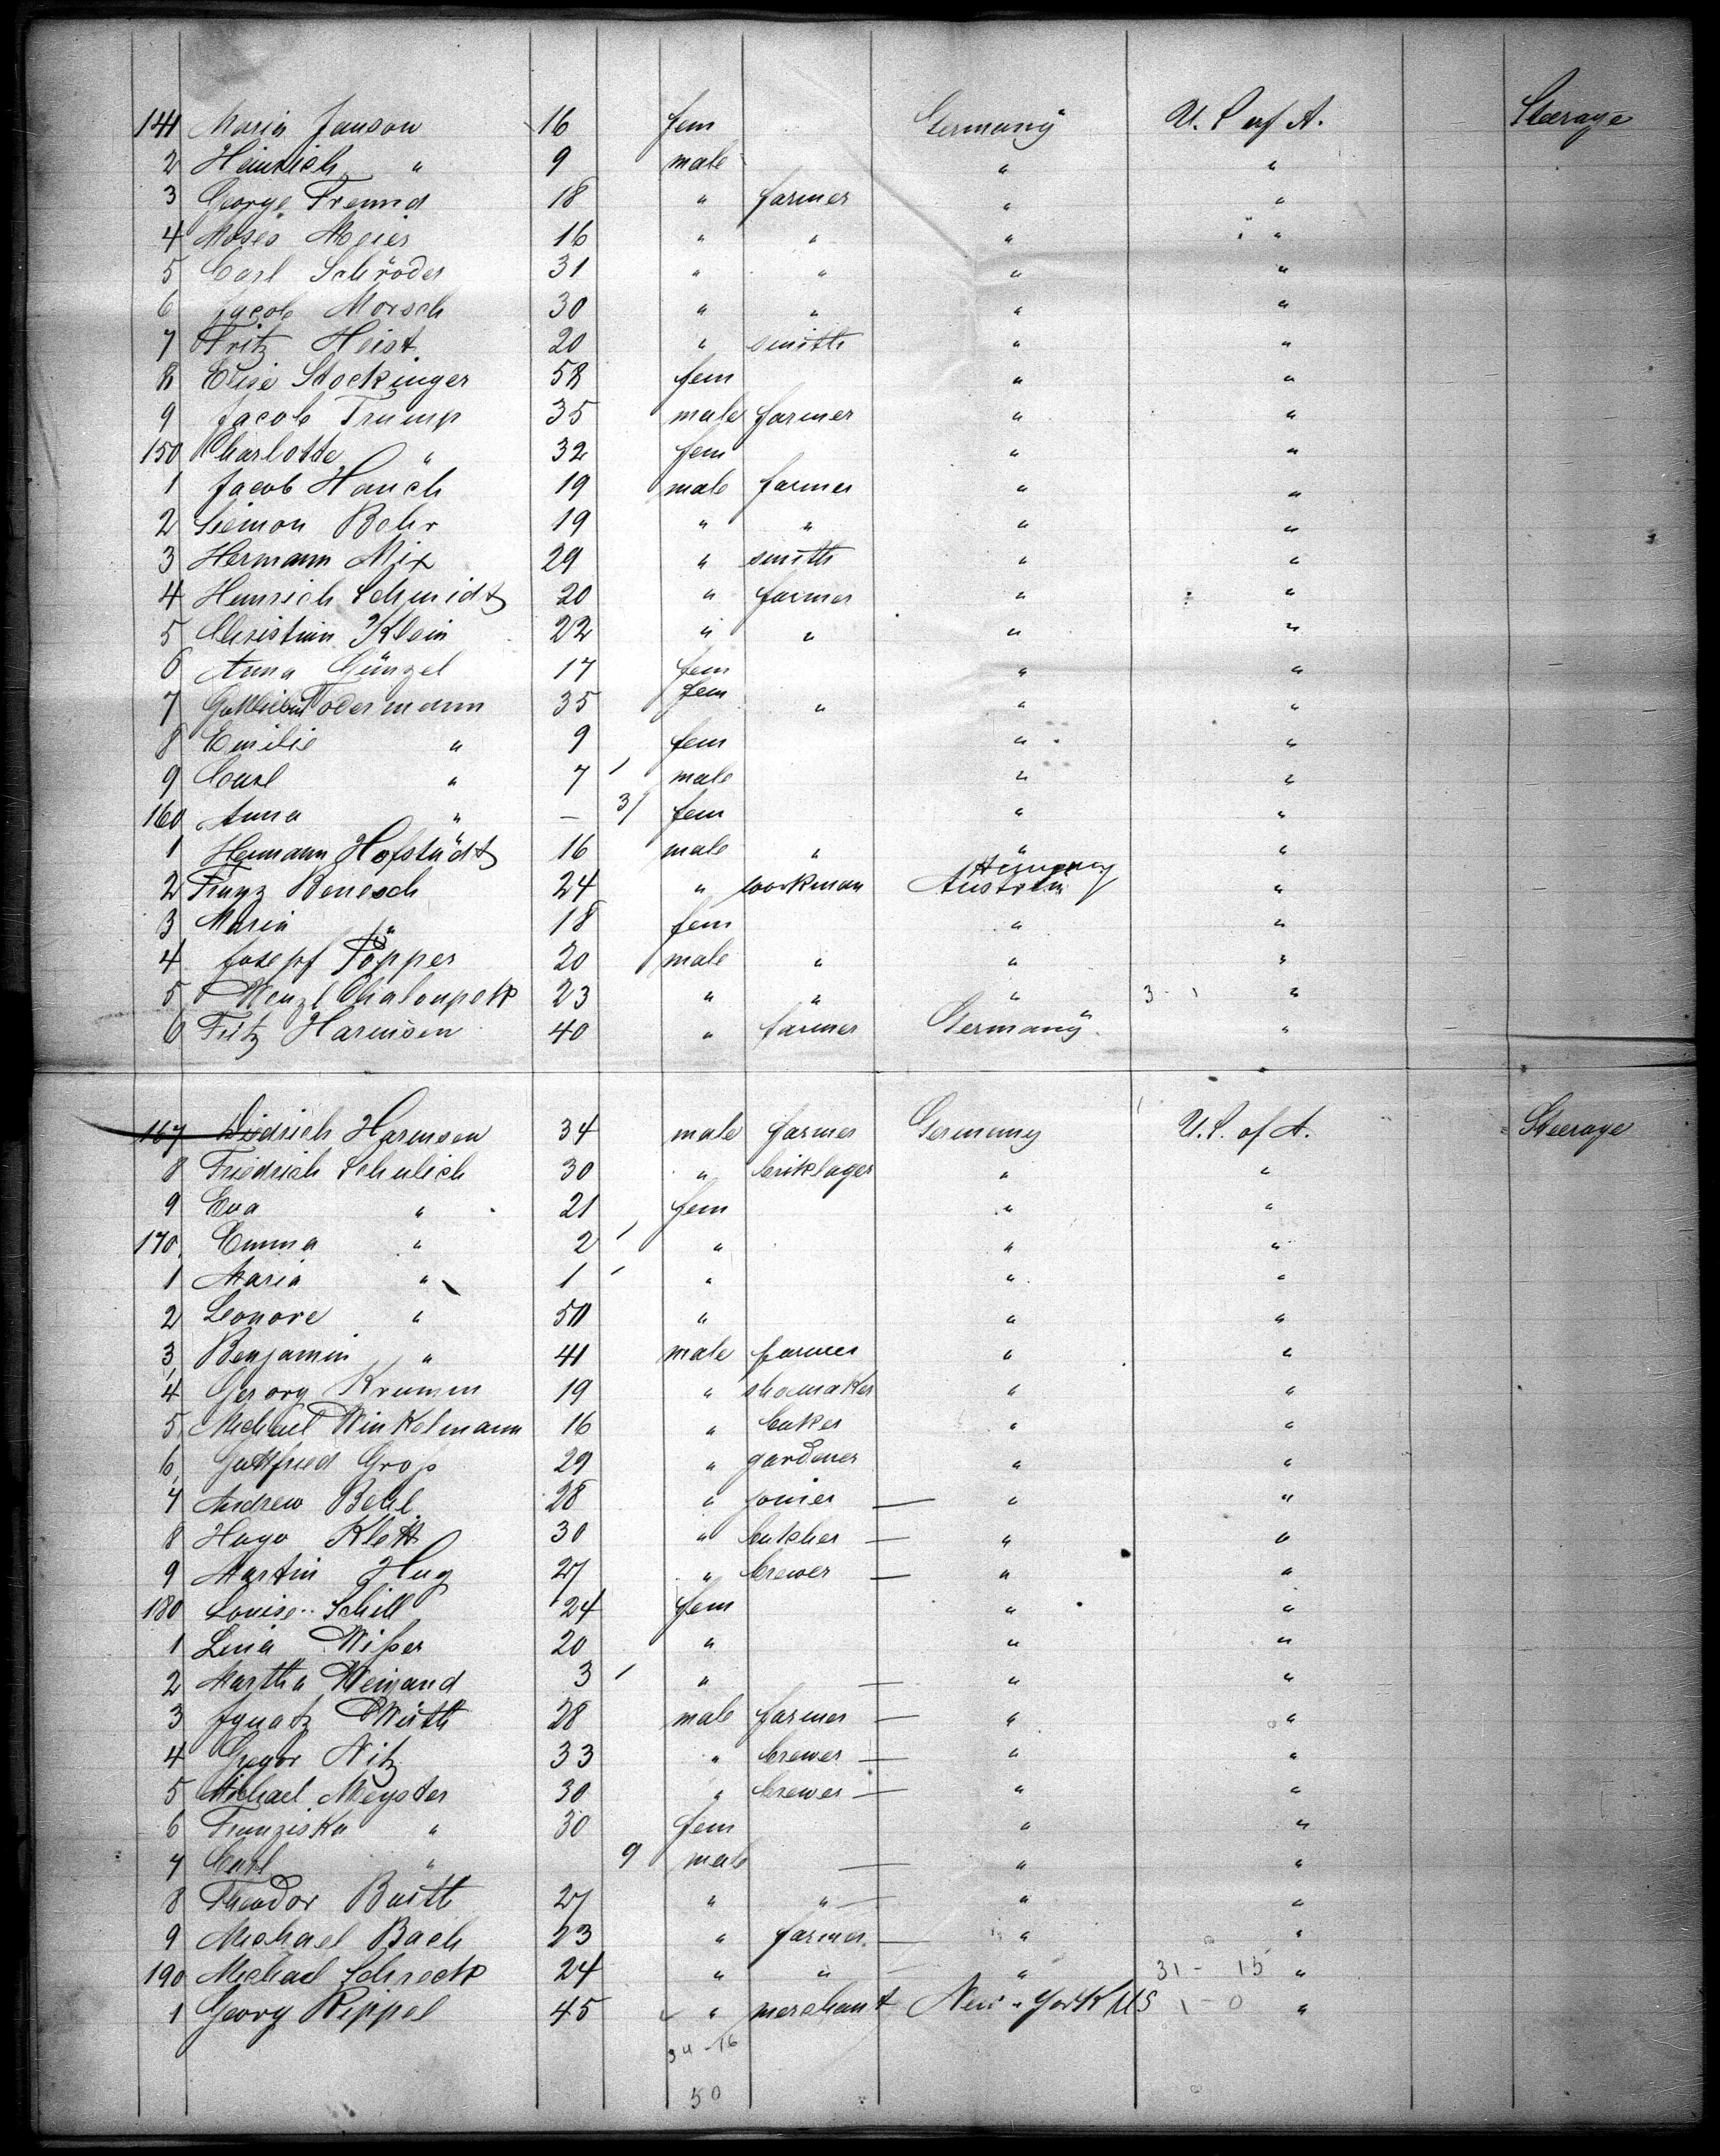 141 Maria Janson 16 fem Germany U. S of A. Steerage
2 Heinrich " 9 male " "
3 George Freund 18 " farmer " "
4 Moses Meier 16 " " " "
5 Carl Schröder 31 " " " "
6 Jacob Morsch 30 " " " "
7 Fritz Heist 20 " smith " "
8 Elise Stockinger 58 fem " "
9 Jacob Trump 35 male farmer " "
150 Charlotte " 32 fem " "
1 Jacob Hauch 19 male farmer " "
2 Siemon Bohr 19 " " " "
3 Hermann Mix 29 " smith " "
4 Heinrich Schmidt 20 " farmer " "
5 Christian Klein 22 " " " "
6 Anna Günzel 17 fem " "
7 Todermann 35 fem " " "
8 Emilie " 9 fem " "
9 Carl " 7 male " "
160 Anna " — 3/ fem " "
1 Hermann Hofstädt 16 male " " "
2 Franz Benesch 24 " workman Austria Hungary "
3 Maria " 18 fem " "
4 Josepf Pöpper 20 male " " "
5 Wenzl Chaloupek 23 " " " 3 - 1 "
6 Fritz Harmsen 40 " farmer Germany "
167 Diedrich Harmsen 34 male farmer Germany U. S. of A. Steerage
8 Friedrich Schulich 30 " briklayer " "
9 Eva " 21 fem " "
170 Emma " 2 " " "
1 Maria " 1 " " "
2 Leonore " 50 " " "
3 Benjamin " 41 male farmer " "
4 Georg Krumm 19 " shoemaker " "
5 Michael Winkelmann 16 " baker " "
6 Gottfried Groß 29 " gardener " "
7 Andrew Behl 28 " joiner — " "
8 Hugo Klett 30 " butcher — " "
9 Martin Hug 27 " brewer — " "
180 Louise Schill 24 fem " "
1 Lina Wißer 20 " " "
2 Martha Weinand 3 " — " "
3 Ignatz Wirth 28 male farmer — " "
4 Gregor Nitz 33 " brewer — " "
5 Michael Meyster 30 " brewer — " "
6 Franziska " 30 fem " "
7 Carl " 9 male — " "
8 Theodor 27 " " — " "
9 Michael Bach 23 " farmer — " "
190 Michael Schreck 24 " " — " 31 - 15 "
1 Georg Rippel 45 " merchant New-York US 1 - 0 "
34 - 16
50